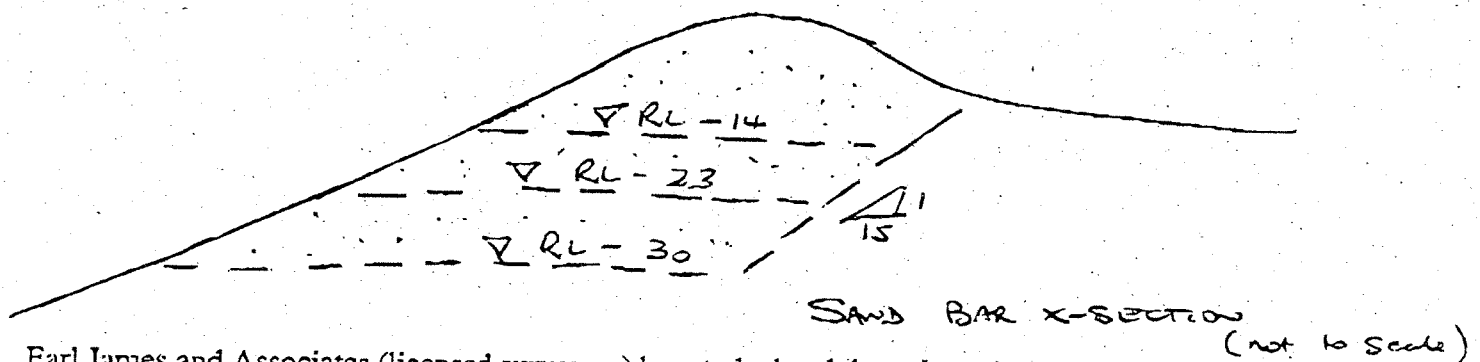 RL - 14
RL - 23
1
15
RL - 30
SAND BAR X-SECTION
(not to scale)
Earl James and Associates (licensed